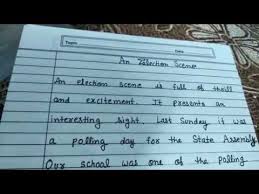 Topic
Date
An Election Scene
An election scene is full of thrill
and excitement. It presents an
interesting sight. Last Sunday it was
a polling day for the State Assembly
Our school was one of the polling